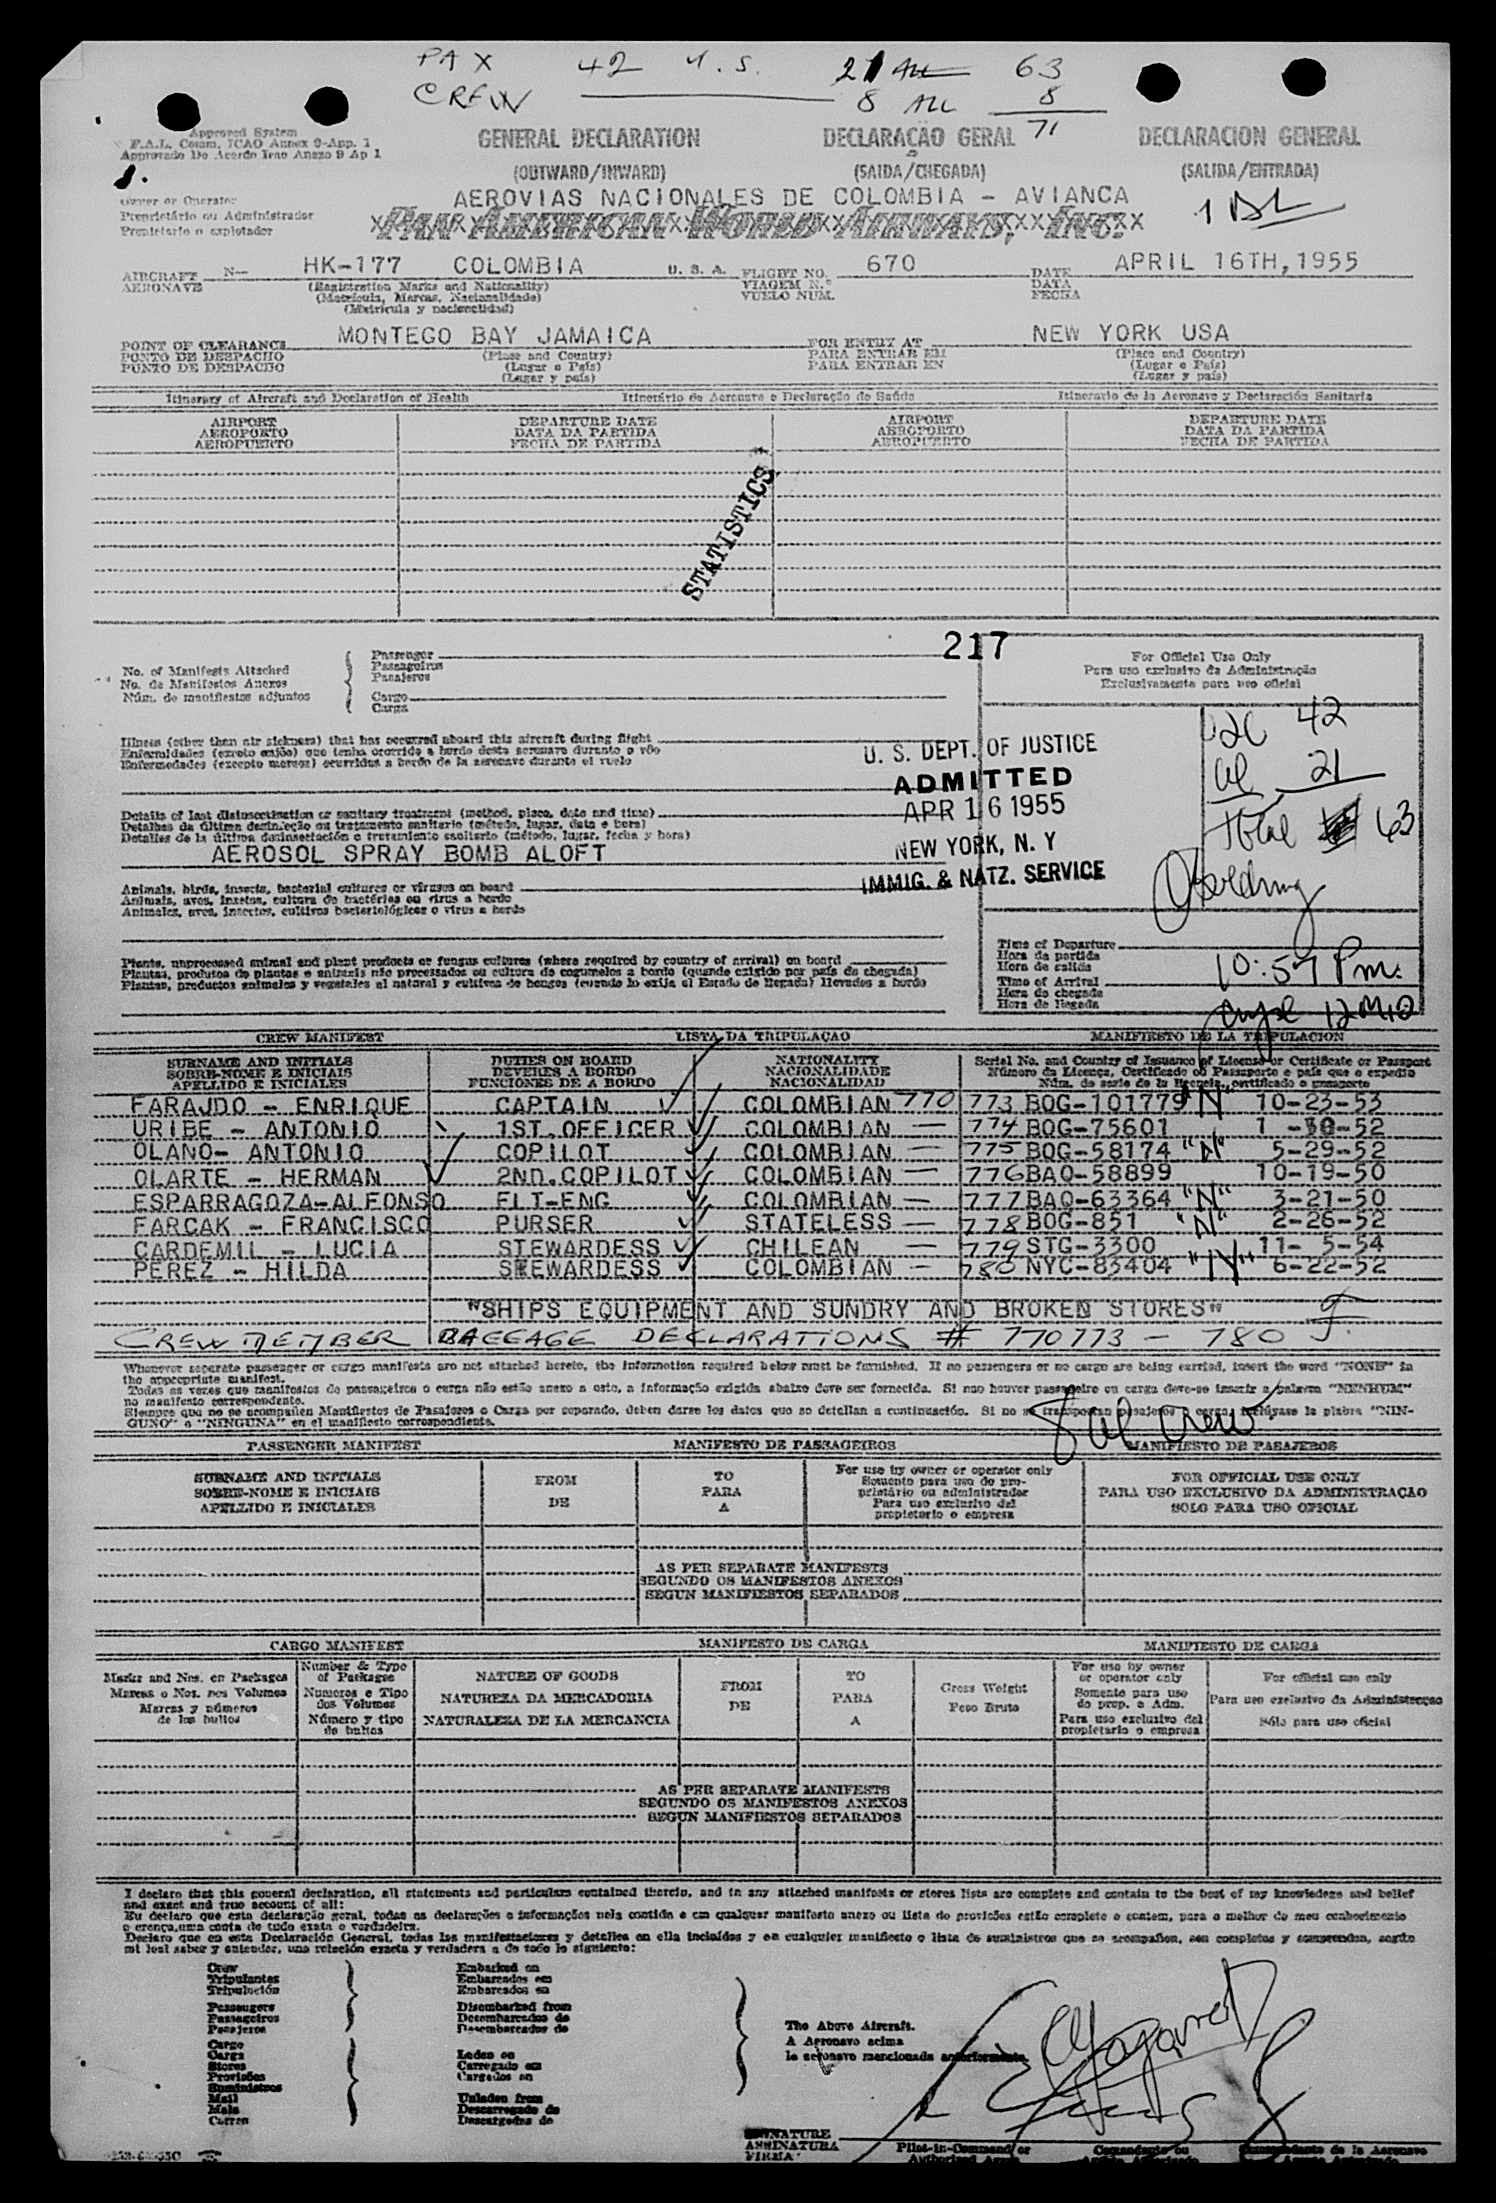 PAX 42 U.S. 21 63
CREW 8 ALL 8
71
Approved System
F.A.L. Comm. ICAO Annex 9-App. 1
Approvado De Acordo Icao Anexo 9 Ap 1
GENERAL DECLARATION DECLARAÇÃO GERAL DECLARACION GENERAL
(OUTWARD/INWARD) (SAIDA/CHEGADA) (SALIDA/ENTRADA)
Owner or Operator
Proprietário ou Administrador
Propietario o explotador
AEROVIAS NACIONALES DE COLOMBIA - AVIANCA
PAN AMERICAN WORLD AIRWAYS, INC.
AIRCRAFT N— HK-177 COLOMBIA U. S. A. FLIGHT NO. 670 DATE APRIL 16TH, 1955
AERONAVE (Registration Marks and Nationality) VIAGEM N.° DATA
(Matrícula, Marcas, Nacionalidade) VUELO NUM. FECHA
(Matrícula y nacionalidad)
POINT OF CLEARANCE MONTEGO BAY JAMAICA FOR ENTRY AT NEW YORK USA
PONTO DE DESPACHO (Place and Country) PARA ENTRAR EM (Place and Country)
PUNTO DE DESPACHO (Lugar e País) PARA ENTRAR EN (Lugar e País)
(Lugar y país) (Lugar y país)
Itinerary of Aircraft and Declaration of Health Itinerário da Aeronave e Declaração de Saúde Itinerario de la Aeronave y Declaración Sanitaria
AIRPORT DEPARTURE DATE AIRPORT DEPARTURE DATE
AEROPORTO DATA DA PARTIDA AEROPORTO DATA DA PARTIDA
AEROPUERTO FECHA DE PARTIDA AEROPUERTO FECHA DE PARTIDA
STATISTICS
217
No. of Manifests Attached
No. de Manifestos Anexos
Núm. de manifiestos adjuntos
Passenger
Passageiros
Pasajeros
Cargo
Carga
For Official Use Only
Para uso exclusivo da Administração
Exclusivamente para uso oficial
Illness (other than air sickness) that has occurred aboard this aircraft during flight
Enfermidades (exceto enjôo) que tenha ocorrido a bordo desta aeronave durante o vôo
Enfermedades (excepto mareos) ocurridas a bordo de la aeronave durante el vuelo
U. S. DEPT. OF JUSTICE
ADMITTED
APR 16 1955
NEW YORK, N. Y
IMMIG. & NATZ. SERVICE
USC 42
al 21
Total 63
Details of last disinsectization or sanitary treatment (method, place, date and time)
Detalhes da última desinfeção ou tratamento sanitario (método, lugar, data e hora)
Detalles de la última desinsectación o tratamiento sanitario (método, lugar, fecha y hora)
AEROSOL SPRAY BOMB ALOFT
Animals, birds, insects, bacterial cultures or viruses on board
Animais, aves, insetos, cultura de bactérias ou virus a bordo
Animales, aves, insectos, cultivos bacteriológicos o virus a bordo
Plants, unprocessed animal and plant products or fungus cultures (where required by country of arrival) on board
Plantas, produtos de plantas e animais não processados ou cultura de cogumelos a bordo (quando exigido por país de chegada)
Plantas, productos animales y vegetales al natural y cultivos de hongos (cuando lo exija el Estado de llegada) llevados a bordo
Time of Departure
Hora da partida
Hora de salida
Time of Arrival 10:57 Pm.
Hora de chegada
Hora de llegada
CREW MANIFEST LISTA DA TRIPULAÇAO MANIFIESTO DE LA TRIPULACION
SURNAME AND INITIALS DUTIES ON BOARD NATIONALITY Serial No. and Country of Issuance of License or Certificate or Passport
SOBRE-NOME E INICIAIS DEVERES A BORDO NACIONALIDADE Número da Licença, Certificado ou Passaporte e país que o expediu
APELLIDO E INICIALES FUNCIONES DE A BORDO NACIONALIDAD Núm. de serie de la licencia, certificado o pasaporte
FARAJDO - ENRIQUE CAPTAIN COLOMBIAN 770 773 BOG-101779 "N" 10-23-53
URIBE - ANTONIO 1ST.OFFICER COLOMBIAN — 774 BOG-75601 1 -30-52
OLANO- ANTONIO COPILOT COLOMBIAN — 775 BOG-58174 "N" 5-29-52
OLARTE - HERMAN 2ND.COPILOT COLOMBIAN — 776 BAQ-58899 10-19-50
ESPARRAGOZA-ALFONSO FLT-ENG COLOMBIAN — 777 BAQ-63364 "N" 3-21-50
FARCAK - FRANCISCO PURSER STATELESS — 778 BOG-851 "N" 2-26-52
CARDEMIL - LUCIA STEWARDESS CHILEAN — 779 STG-3300 11- 5-54
PEREZ - HILDA STEWARDESS COLOMBIAN — 780 NYC-83404 "N" 6-22-52
"SHIPS EQUIPMENT AND SUNDRY AND BROKEN STORES"
CREW MEMBER BAGGAGE DECLARATIONS # 770773 - 780
Whenever separate passenger or cargo manifests are not attached hereto, the information required below must be furnished. If no passengers or no cargo are being carried, insert the word "NONE" in
the appropriate manifest.
Todas as vezes que manifestos de passageiros o carga não estão anexo a este, a informação exigida abaixo deve ser fornecida. Si nao houver passageiro ou carga deve-se inserir a palavra "NENHUM"
no manifesto correspondente.
Siempre que no se acompañen Manifiestos de Pasajeros o Carga por separado, deben darse los datos que se detallan a continuación. Si no se transportan pasajeros o carga, inclúyase la plabra "NIN-
GUNO" o "NINGUNA" en el manifiesto correspondiente.
8 al crew
PASSENGER MANIFEST MANIFESTO DE PASSAGEIROS MANIFIESTO DE PASAJEROS
SURNAME AND INITIALS FROM TO For use by owner or operator only FOR OFFICIAL USE ONLY
SOBRE-NOME E INICIAIS DE PARA Somente para uso do proprietário ou administrador PARA USO EXCLUSIVO DA ADMINISTRAÇAO
APELLIDO E INICIALES A Para uso exclusivo del propietario o empresa SOLO PARA USO OFICIAL
AS PER SEPARATE MANIFESTS
SEGUNDO OS MANIFESTOS ANEXOS
SEGUN MANIFIESTOS SEPARADOS
CARGO MANIFEST MANIFESTO DE CARGA MANIFIESTO DE CARGA
Marks and Nos. on Packages Number & Type of Packages NATURE OF GOODS FROM TO Gross Weight For use by owner or operator only For official use only
Marcas e Nos. nos Volumes Numeros e Tipo dos Volumes NATUREZA DA MERCADORIA DE PARA Peso Bruto Somente para uso do prop. e Adm. Para uso exclusivo da Administracçao
Marcas y números de los bultos Número y tipo de bultos NATURALEZA DE LA MERCANCIA A Para uso exclusivo del propietario o empresa Sólo para uso oficial
AS PER SEPARATE MANIFESTS
SEGUNDO OS MANIFESTOS ANEXOS
SEGUN MANIFIESTOS SEPARADOS
I declare that this general declaration, all statements and particulars contained therein, and in any attached manifests or stores lists are complete and contain to the best of my knowledege and belief
and exact and true account of all:
Eu declaro que esta declaração geral, todas as declarações e informações nela contida e em qualquer manifesto anexo ou lista de provisões estão completo e contem, para o melhor do meu conhecimento
e crença, uma conta de tudo exata e verdadeira.
Declaro que en esta Declaración General, todas las manifestaciones y detalles en ella incluídos y en cualquier manifiesto o lista de suministros que se acompañen, son completos y comprenden, según
mi leal saber y entender, una relación exacta y verdadera a de todo lo siguiente:
Crew Embarked on
Tripulantes Embarcados em
Tripulación Embarcados en
Passengers Disembarked from
Passageiros Desembarcados de
Pasajeros Desembarcados de
Cargo
Carga Laden on
Stores Carregado em
Provisões Cargados en
Suministros
Mail Unladen from
Mala Descarregado de
Correo Descargados de
The Above Aircraft.
A Aeronave acima
la aeronave mencionada anteriormente
SIGNATURE
ASSINATURA Pilot-in-Command or Comandante ou Comandante de la Aeronave
FIRMA